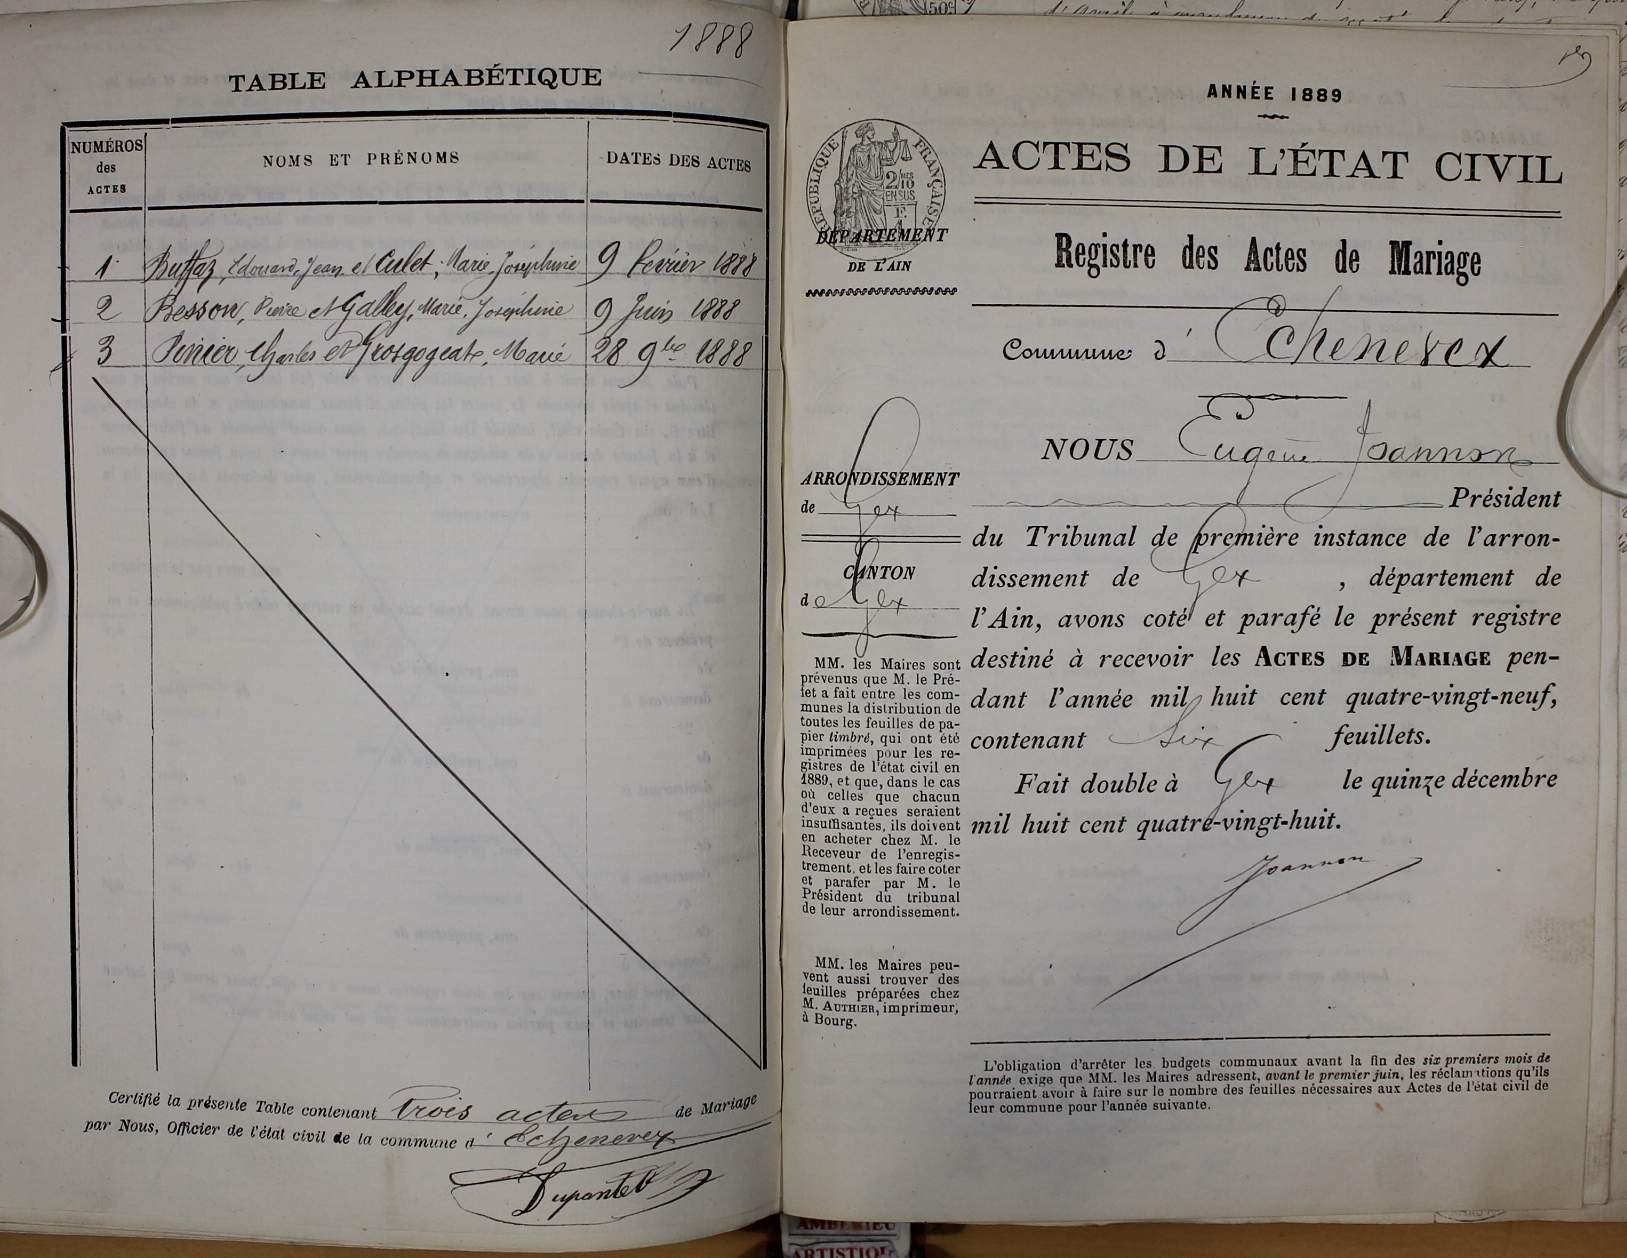 1888
TABLE ALPHABÉTIQUE
NUMÉROS des ACTES
NOMS ET PRÉNOMS
DATES DES ACTES
1 Buffaz, Edouard, Jean et Culet, Marie Joséphine 9 février 1888
2 Besson, Pierre et Galley, Marie, Joséphine 9 Juin 1888
3 Charles et Grosgogeate, Marie 28 9bre 1888
Certifié la présente Table contenant trois actes de Mariage
par Nous, Officier de l'état civil de la commune d' Echenevex
ANNÉE 1889
RÉPUBLIQUE FRANÇAISE
2/10 EN SUS
ACTES DE L'ÉTAT CIVIL
DÉPARTEMENT
DE L'AIN
Registre des Actes de Mariage
Commune d' Echenevex
ARRONDISSEMENT
de Gex
CANTON
de Gex
NOUS Eugène Joannon
Président
du Tribunal de première instance de l'arron-
dissement de Gex, département de
l'Ain, avons coté et parafé le présent registre
destiné à recevoir les ACTES DE MARIAGE pen-
dant l'année mil huit cent quatre-vingt-neuf,
contenant six feuillets.
Fait double à Gex le quinze décembre
mil huit cent quatre-vingt-huit.
Joannon
MM. les Maires sont
prévenus que M. le Pré-
fet a fait entre les com-
munes la distribution de
toutes les feuilles de pa-
pier timbré, qui ont été
imprimées pour les re-
gistres de l'état civil en
1889, et que, dans le cas
où celles que chacun
d'eux a reçues seraient
insuffisantes, ils doivent
en acheter chez M. le
Receveur de l'enregis-
trement, et les faire coter
et parafer par M. le
Président du tribunal
de leur arrondissement.
MM. les Maires peu-
vent aussi trouver des
feuilles préparées chez
M. AUTHIER, imprimeur,
à Bourg.
L'obligation d'arrêter les budgets communaux avant la fin des six premiers mois de
l'année exige que MM. les Maires adressent, avant le premier juin, les réclamations qu'ils
pourraient avoir à faire sur le nombre des feuilles nécessaires aux Actes de l'état civil de
leur commune pour l'année suivante.